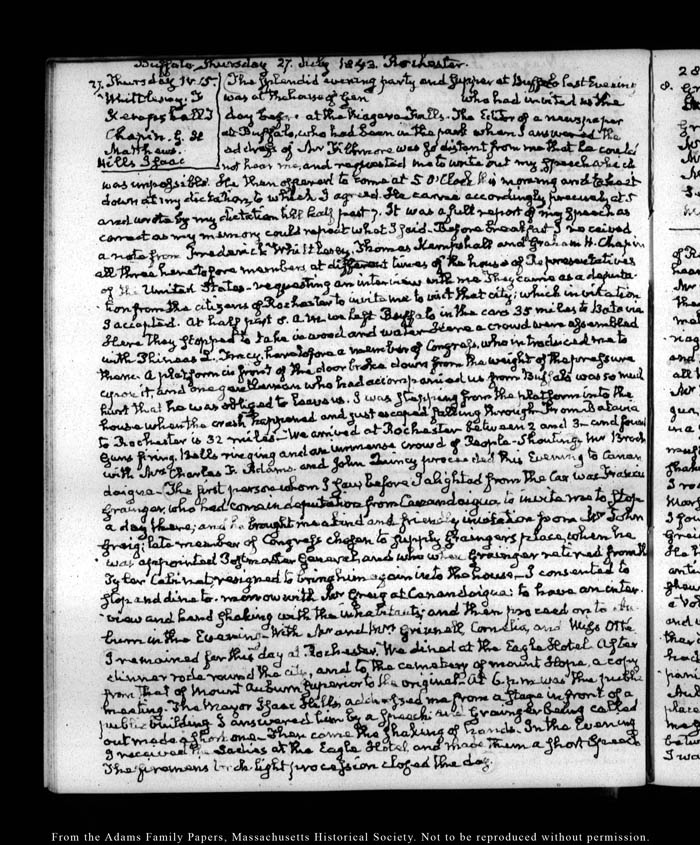 Buffalo Thursday 27. July 1843. Rochester.
27. Thursday IV.15.
Whittlesey. F
Kempshall T
Chapin. G. H
Matthews.
Hills Isaac
The splendid evening party and supper at Buffalo last Evening
was at the house of Gen who had invited us the
day before at the Niagara Falls. The Editor of a newspaper
at Buffalo, who had been in the park when I answered the
address of Mr Fillmore was so distant from me that he could
not hear me, and requested me to write out my speech which
was impossible. He then offered to come at 5 O'Clock this morning and to set
down at my dictation, to which I agreed. He came accordingly precisely at 5
and wrote by my dictation till half past 7. It was a full report of my speech as
correct as my memory could repeat what I said. Before breakfast I received
a note from Frederick Whittlesey, Thomas Kempshall and Graham H. Chapin
all three heretofore members at different times of the house of Representatives
of the United States - requesting an interview with me. They came as a deputa-
tion from the citizens of Rochester to invite me to visit that city; which invitation
I accepted. At half past 8. A.M. we left Buffalo in the cars 35 miles to Batavia
Here they stopped to take in wood and water. Here a crowd were assembled
with Phineas L. Tracy, heretofore a member of Congress, who introduced me to
them. A platform in front of the door broke down from the weight of the pressure
upon it, and one gentleman who had accompanied us from Buffalo was so much
hurt that he was obliged to leave us. I was stepping from the platform into the
house when the crash happened and just escaped falling through. From Batavia
to Rochester is 32 miles - We arrived at Rochester between 2 and 3 and found
Guns firing, Bells ringing and an immense crowd of People - Shouting. Mr Brooks
with Mrs Charles F. Adams, and John Quincy proceeded this Evening to Canan-
daigua - The first person whom I saw before I alighted from the Car was Francis
Grainger, who had come in deputation from Canandaigua to invite me to stop
a day there; and he brought me a kind and friendly invitation from Mr John
Greig, late member of Congress chosen to supply Graingers place, when he
was appointed Postmaster General, and who when Grainger retired from the
Tyler Cabinet resigned to bring him again into the house - I consented to
stop and dine to-morrow with Mr Greig at Canandaigua; to have an inter-
view and hand shaking with the inhabitants; and then proceed on to Au-
burn in the Evening with Mr and Mrs Grinnell Cornelia, and Miss Otis
I remained for this day at Rochester. We dined at the Eagle Hotel. After
dinner rode round the city, and to the cemetery of mount Hope, a copy
from that of Mount Auburn superior to the original. At 6 p.m. was the public
meeting. The Mayor Isaac Hills addressed me from a stage in front of a
public building I answered him by a speech; and Grainger being called
out made a short one. Then came the shaking of hands. In the Evening
I received the Ladies at the Eagle Hotel, and made them a short speech
The firemens torch light procession closed the day.
28
From the Adams Family Papers, Massachusetts Historical Society. Not to be reproduced without permission.